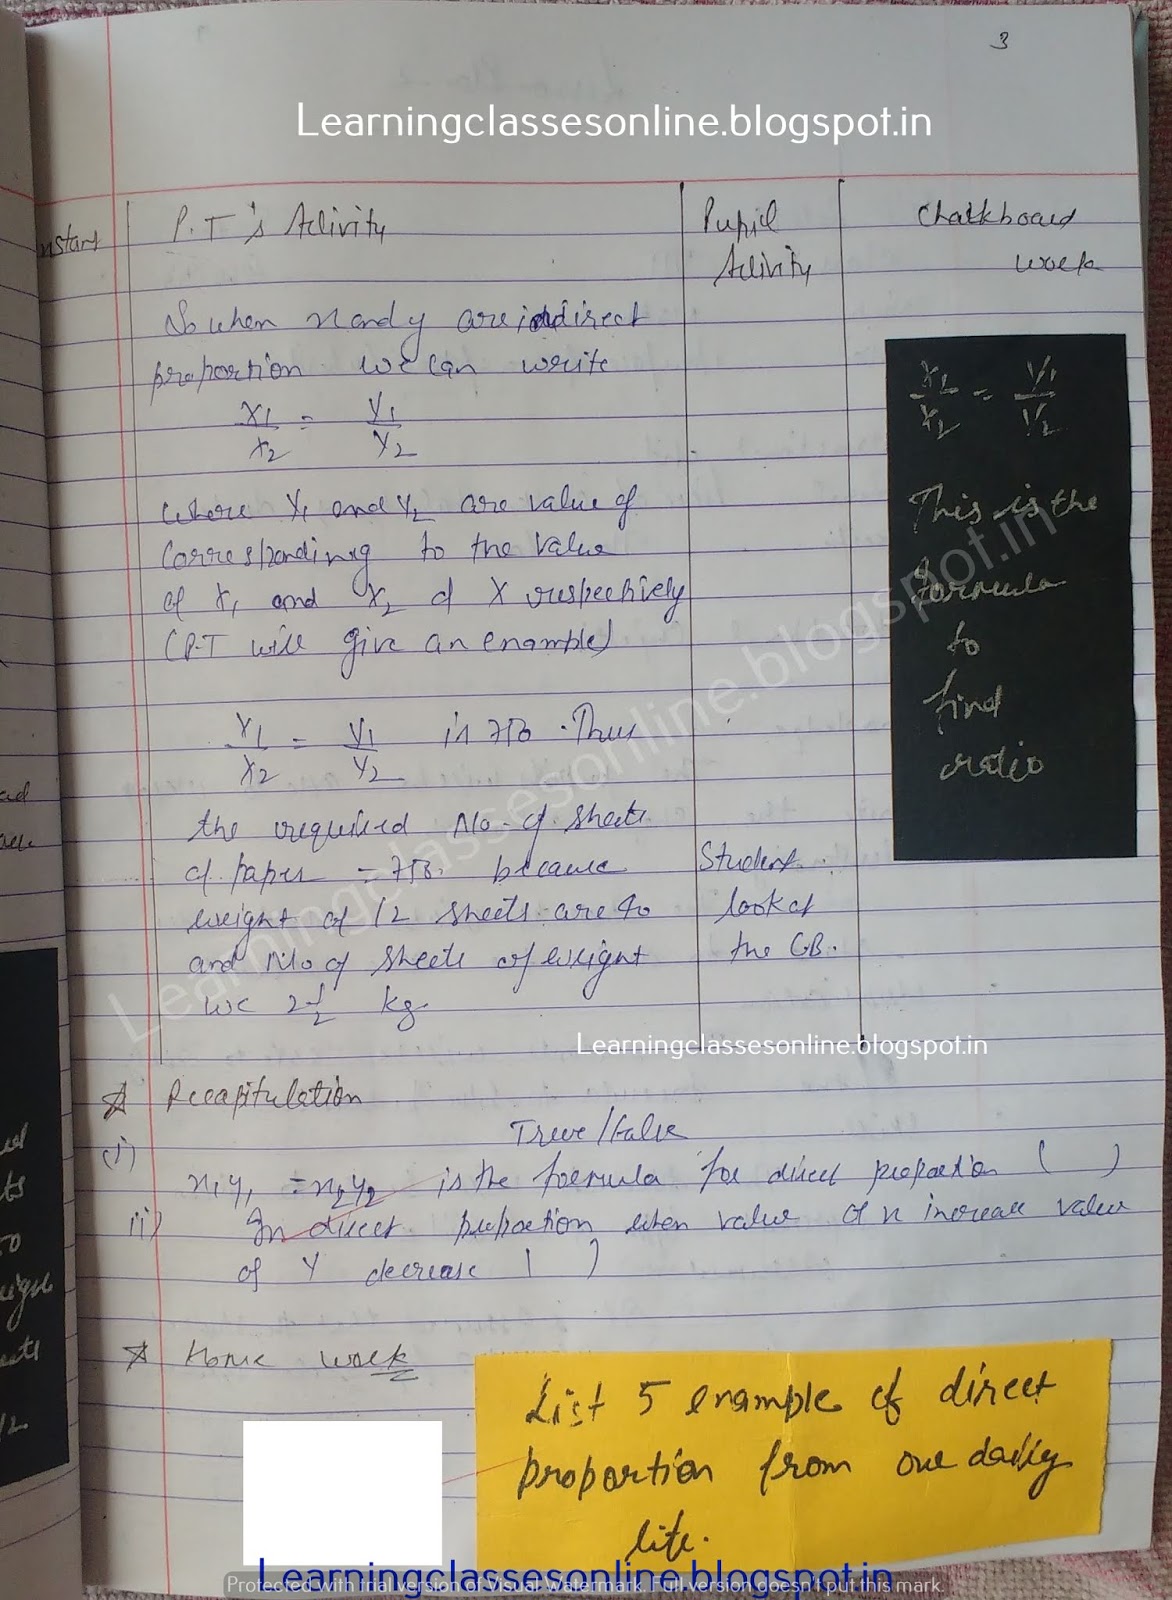 3
Learningclassesonline.blogspot.in
P.T's Activity
Pupil Activity
Chalkboard work
So when x and y are in direct
proportion we can write
X1/X2 = Y1/Y2
where Y1 and Y2 are value of
corresponding to the value
of X1 and X2 of X respectively
(P.T will give an example)
X1/X2 = Y1/Y2 is 750. Thus
the required No. of sheets
of paper = 750. because
weight of 12 sheets are 40
and No of sheets of weight
we 2 1/2 kg.
Student
look at
the CB.
X1/X2 = Y1/Y2
This is the
formula
to
find
ratio
Learningclassesonline.blogspot.in
Learningclassesonline.blogspot.in
☆ Recapitulation
True/False
(i) x1y1 = x2y2 is the formula for direct proportion ( )
ii) In direct proportion when value of x increase value
of Y decrease ( )
☆ Home work
List 5 example of direct
proportion from our daily
life.
Learningclassesonline.blogspot.in
Protected with trial version of Visual Watermark. Full version doesn't put this mark.